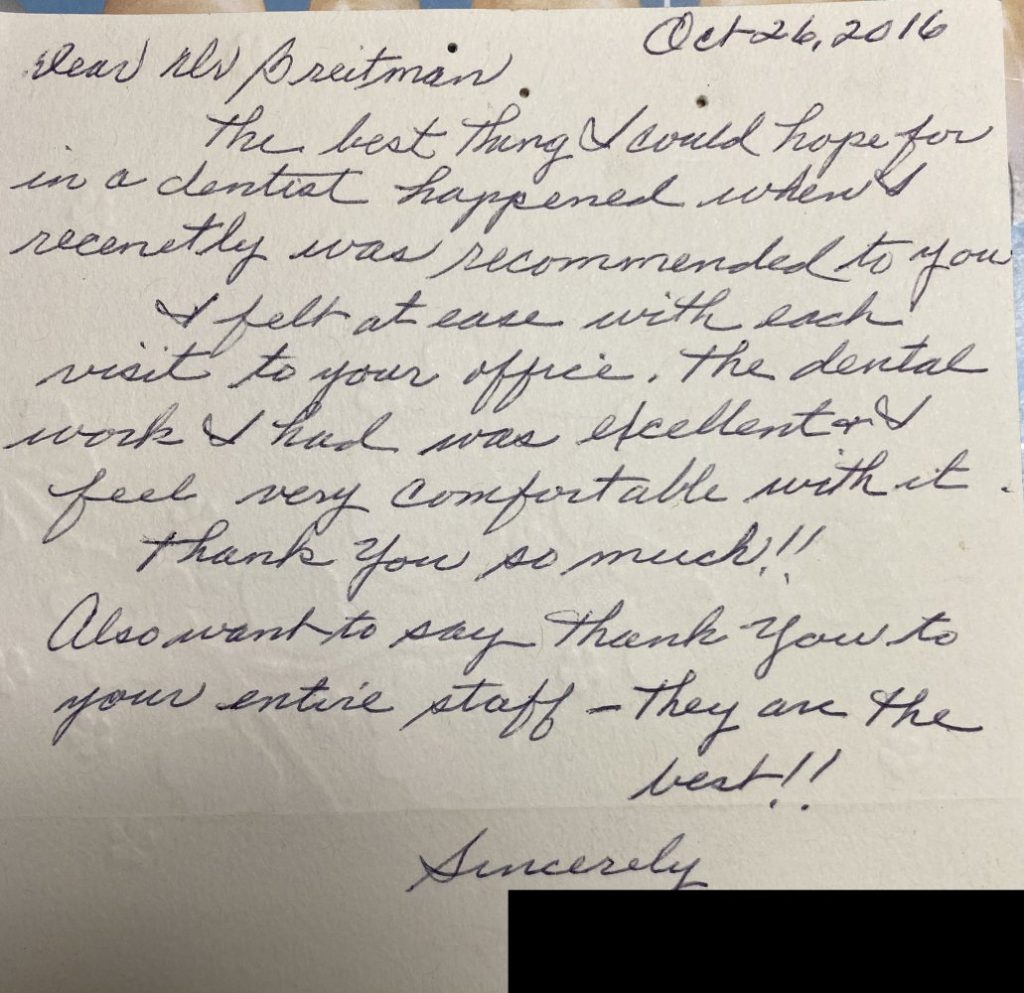 Oct 26, 2016
Dear Dr Breitman
The best thing I could hope for
in a dentist happened when I
recenetly was recommended to you
I felt at ease with each
visit to your office. The dental
work I had was excellent & I
feel very comfortable with it.
Thank You so much!!
Also want to say Thank You to
your entire staff - They are the
best!!
Sincerely